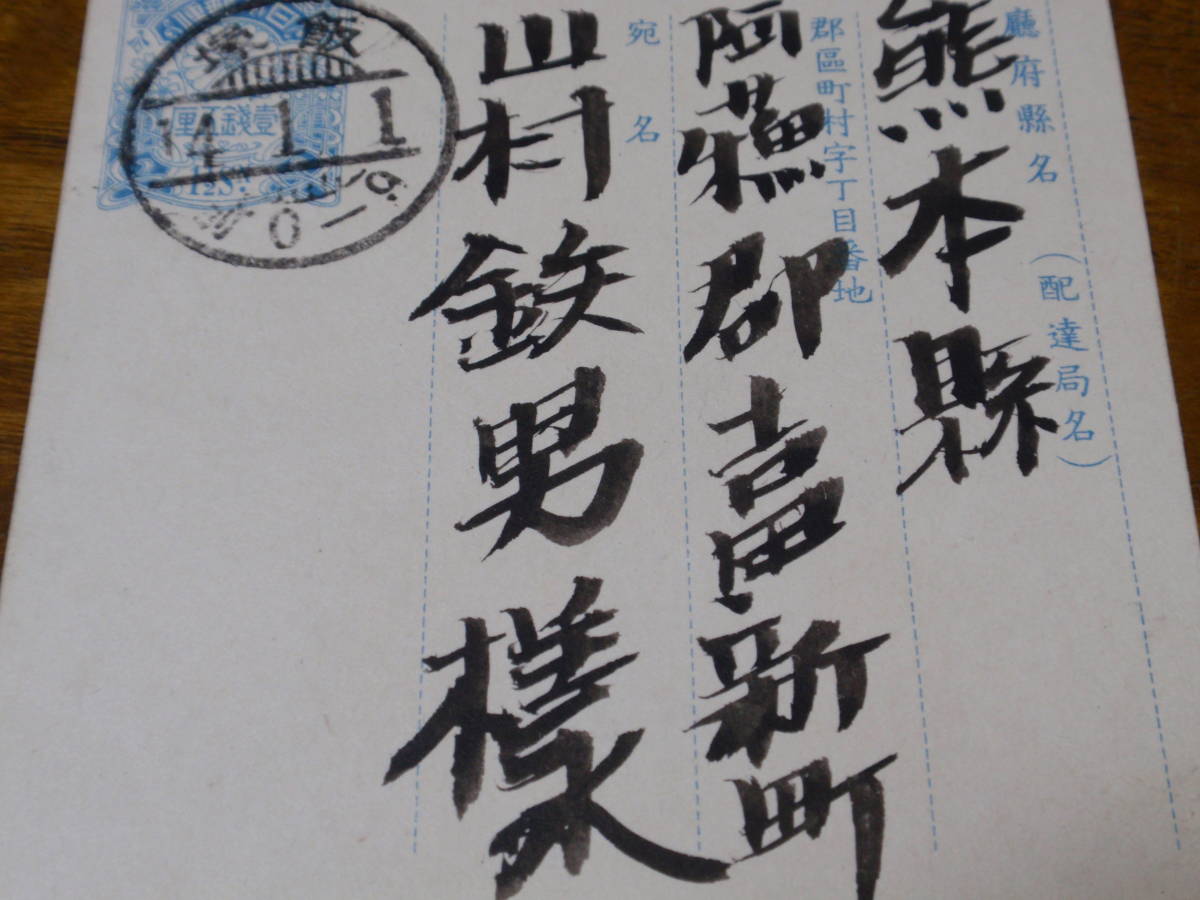 廳府縣名(配達局名)
熊本縣
郡區町村字丁目番地
阿蘇郡富田新町
宛名
山村鉄男様
飯塚
14.1.1
0-9
壹錢五厘
1½S.